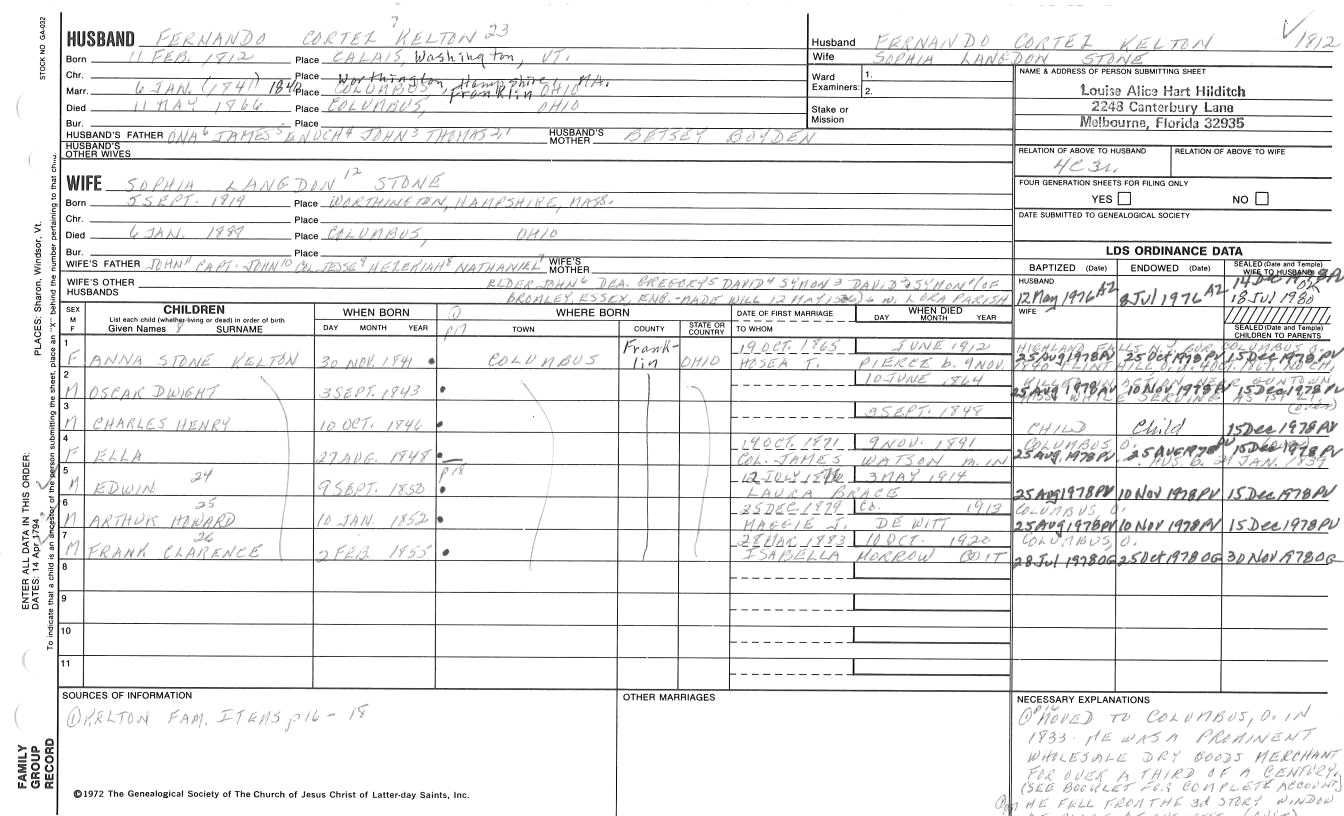 STOCK NO. GA-032
PLACES: Sharon, Windsor, Vt.
ENTER ALL DATA IN THIS ORDER:
DATES: 14 Apr 1794
To indicate that a child is an ancestor of the person submitting the sheet, place an "X" behind the number pertaining to that child.
FAMILY GROUP RECORD
HUSBAND FERNANDO CORTEZ 7 KELTON 23
Born 11 FEB. 1812 Place CALAIS, Washington, VT.
Chr. Place Worthington, Hampshire, MA.
Marr. 6 JAN. (1841) 1840 Place COLUMBUS, Franklin OHIO
Died 11 MAY 1866 Place COLUMBUS, OHIO
Bur. Place
HUSBAND'S FATHER ONA 6 JAMES 5 ENOCH 4 JOHN 3 THOMAS 2,1 HUSBAND'S MOTHER BETSEY BOYDEN
HUSBAND'S OTHER WIVES
WIFE SOPHIA LANGDON 12 STONE
Born 5 SEPT. 1819 Place WORTHINGTON, HAMPSHIRE, MASS.
Chr. Place
Died 6 JAN. 1888 Place COLUMBUS, OHIO
Bur. Place
WIFE'S FATHER JOHN 11 CAPT. JOHN 10 CO. JESSE 9 HEZEKIAH 8 NATHANIEL 7 WIFE'S MOTHER
WIFE'S OTHER HUSBANDS ELDER JOHN 6 DEA. GREGORY 5 DAVID 4 SYMON 3 DAVID 2 SYMON 1 OF
BROMLEY, ESSEX, ENG. - MADE WILL 12 MAY 1506 W. LORA PARISH
Husband FERNANDO CORTEZ KELTON 1812
Wife SOPHIA LANGDON STONE
Ward Examiners: 1. 2.
Stake or Mission
NAME & ADDRESS OF PERSON SUBMITTING SHEET
Louise Alice Hart Hilditch
2248 Canterbury Lane
Melbourne, Florida 32935
RELATION OF ABOVE TO HUSBAND RELATION OF ABOVE TO WIFE
4C3r.
FOUR GENERATION SHEETS FOR FILING ONLY
YES NO
DATE SUBMITTED TO GENEALOGICAL SOCIETY
LDS ORDINANCE DATA
BAPTIZED (Date) ENDOWED (Date) SEALED (Date and Temple) WIFE TO HUSBAND
HUSBAND 12 May 1976 AZ 8 Jul 1976 AZ 18 Jul 1980
WIFE
SEALED (Date and Temple) CHILDREN TO PARENTS
SEX M F
CHILDREN
List each child (whether living or dead) in order of birth
Given Names 8 SURNAME
WHEN BORN DAY MONTH YEAR
WHERE BORN TOWN COUNTY STATE OR COUNTRY
p17
DATE OF FIRST MARRIAGE TO WHOM
WHEN DIED DAY MONTH YEAR
1 F ANNA STONE KELTON 30 NOV. 1841 COLUMBUS Franklin OHIO 19 OCT. 1865 JUNE 1912
HOSEA T. PIERCE b. 9 NOV. 25 Aug 1978 PV 25 Oct 1978 PV 15 Dec 1978 PV
2 M OSCAR DWIGHT 3 SEPT. 1843 10 JUNE 1864 25 Aug 1978 PV 10 Nov 1978 PV 15 Dec 1978 PV
(over)
3 M CHARLES HENRY 10 OCT. 1846 9 SEPT. 1848 CHILD Child 15 Dec 1978 PV
4 F ELLA 27 AUG. 1848 19 OCT. 1871 9 NOV. 1891 COLUMBUS O.
COL. JAMES WATSON m. IN 25 Aug 1978 PV 25 Aug 1978 PV 15 Dec 1978 PV
p18
5 M EDWIN 24 9 SEPT. 1850 12 JULY 1876 3 MAY 1914
LAURA BRACE 25 Aug 1978 PV 10 Nov 1978 PV 15 Dec 1978 PV
6 M ARTHUR HOWARD 25 10 JAN. 1852 25 DEC. 1879 Co. 1913 COLUMBUS, O.
MAGGIE J. DE WITT 25 Aug 1978 PV 10 Nov 1978 PV 15 Dec 1978 PV
7 M FRANK CLARENCE 26 2 FEB. 1855 28 MAR. 1883 10 OCT. 1920 COLUMBUS, O.
ISABELLA MORROW COIT 28 Jul 1978 OG 25 Oct 1978 OG 30 Nov 1978 OG
8
9
10
11
SOURCES OF INFORMATION
① KELTON FAM. ITEMS p16 - 18
OTHER MARRIAGES
NECESSARY EXPLANATIONS
① p16 MOVED TO COLUMBUS, O. IN
1833. HE WAS A PROMINENT
WHOLESALE DRY GOODS MERCHANT
FOR OVER A THIRD OF A CENTURY.
(SEE BOOKLET FOR COMPLETE ACCOUNT)
HE FELL FROM THE 3d STORY WINDOW
©1972 The Genealogical Society of The Church of Jesus Christ of Latter-day Saints, Inc.